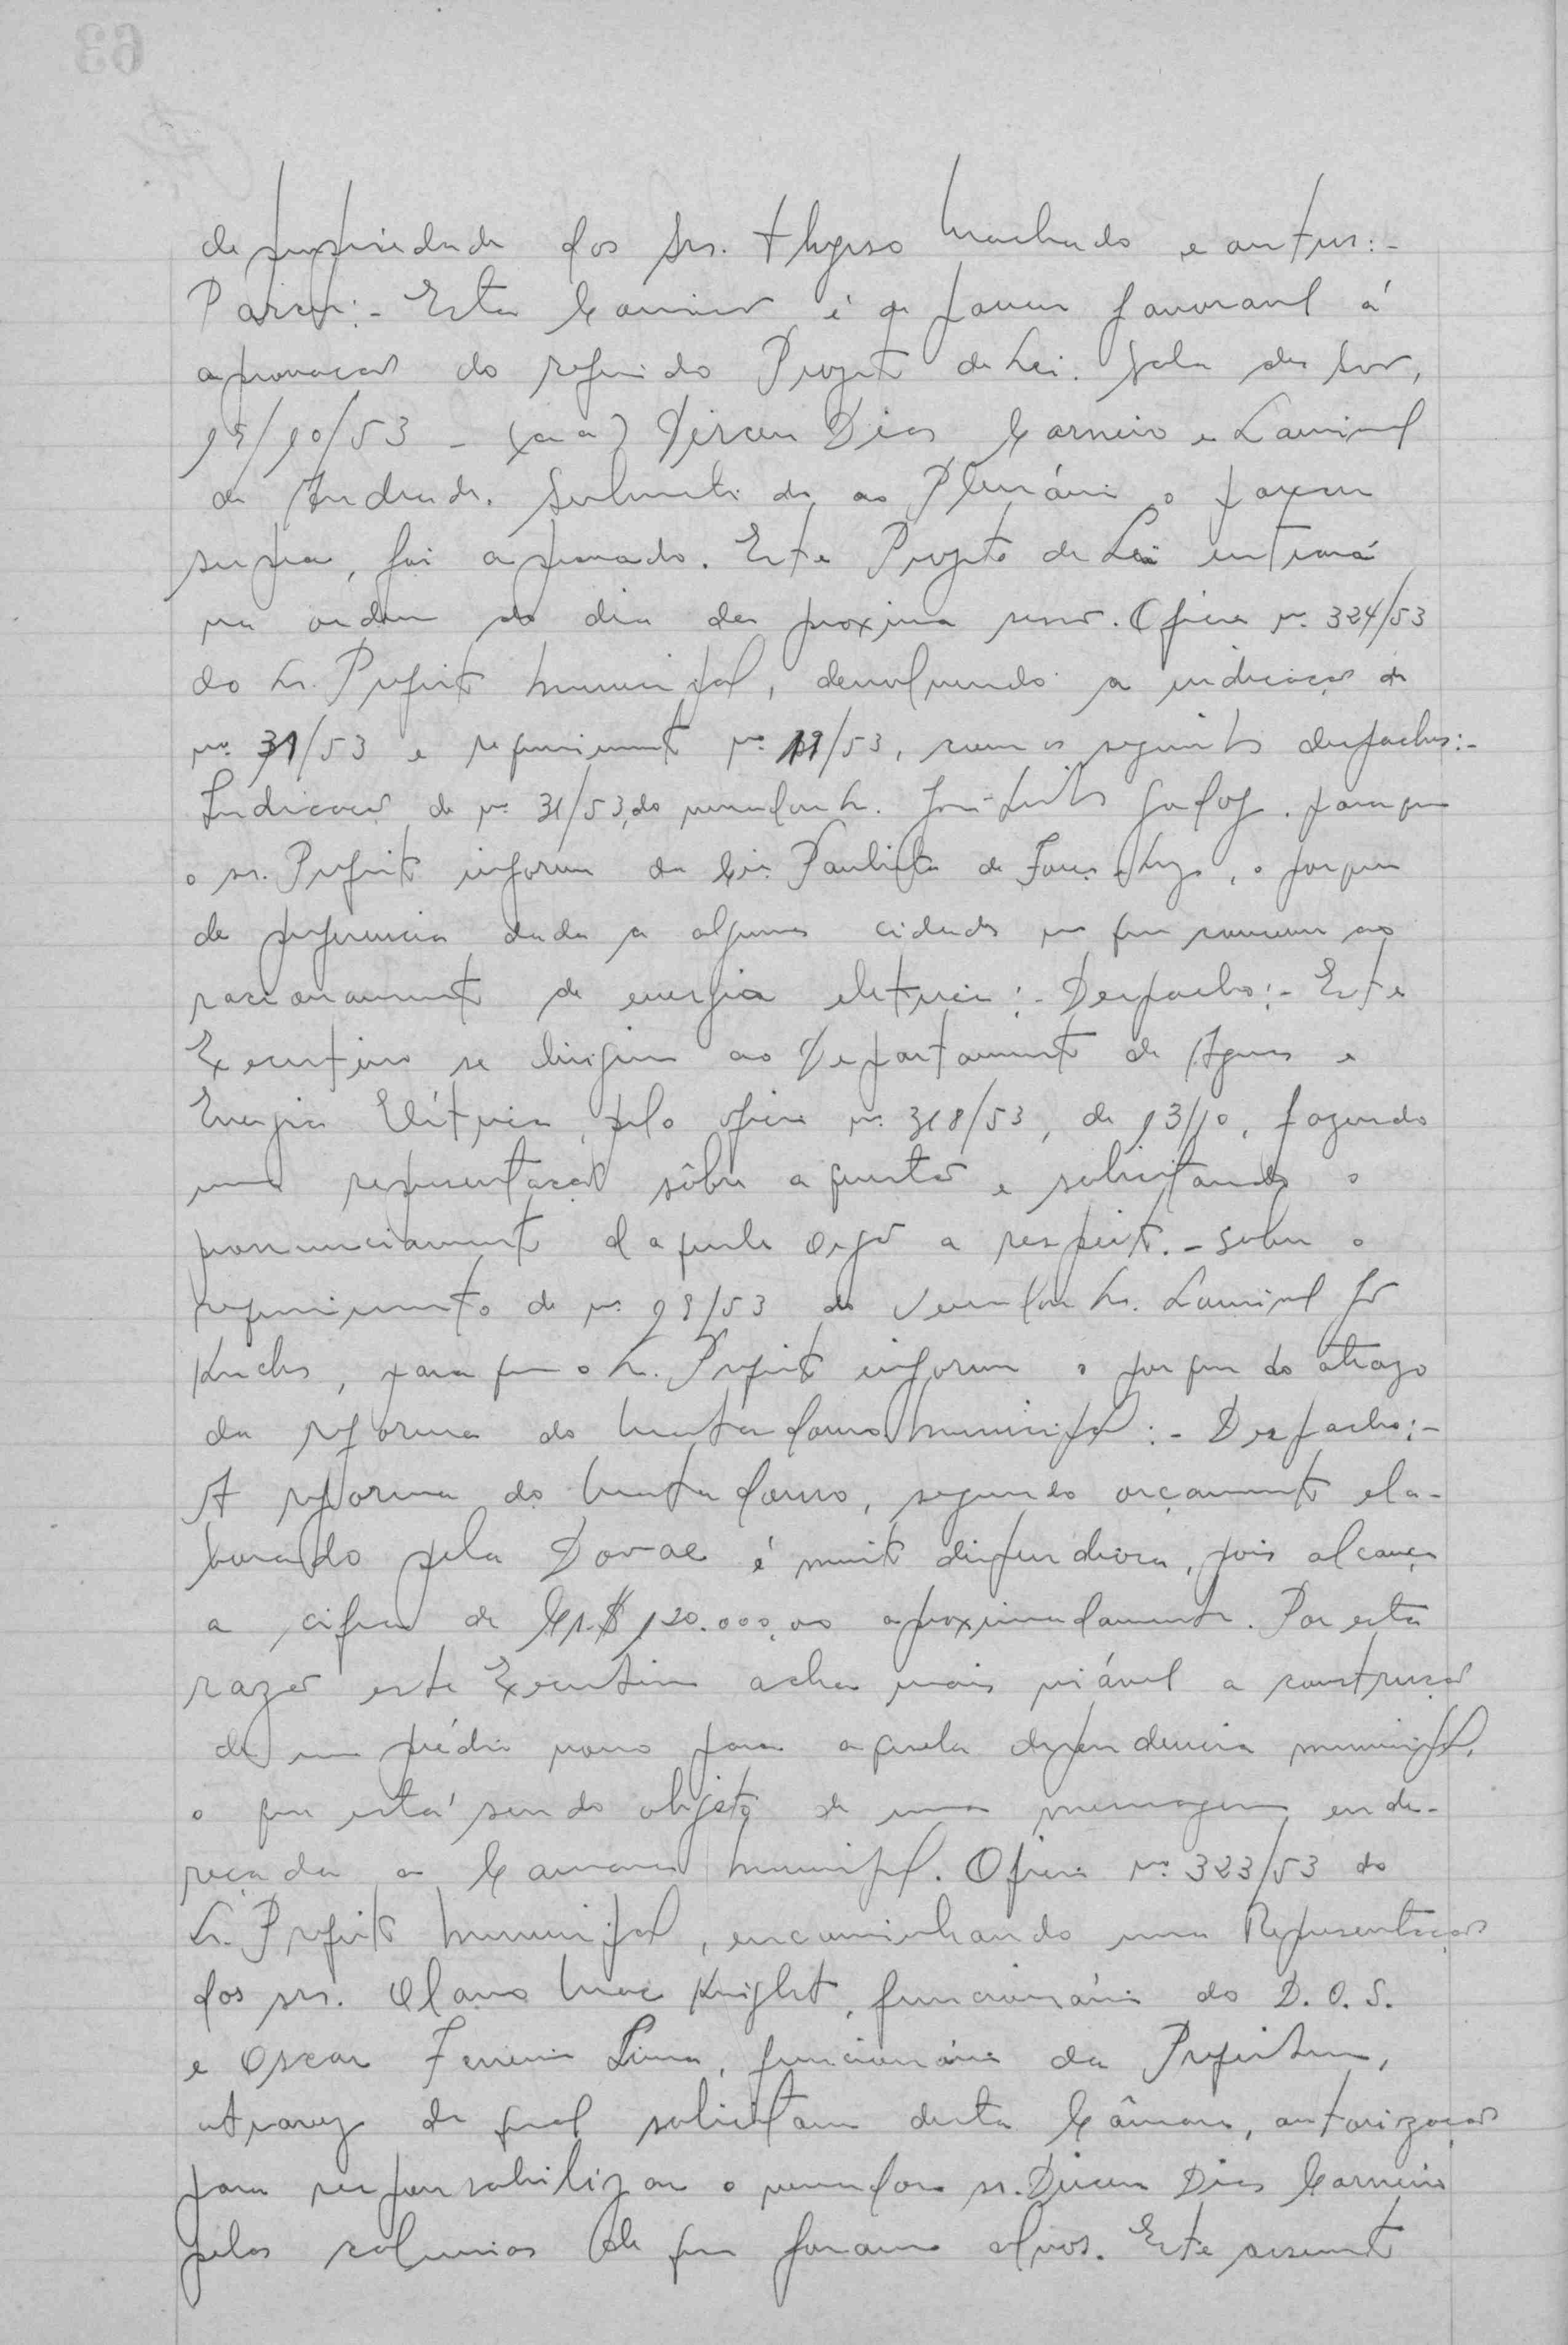 de propriedade dos srs. Thyrso Machado e outros:-
Parecer:- Esta Comissão é de parecer favoravel á
aprovação do referido Projeto de Lei. Sala das Ses,
15/10/53 - (aa) Dirceu Dias Carneiro e Lourival
de Andrade. Submetido ao Plenário o parecer
supra, foi aprovado. Este Projeto de Lei entrará
na ordem do dia da proxima sessão. Oficio nº 324/53
do Sr. Prefeito Municipal, devolvendo a indicação de
nº 31/53 e requerimento nº 19/53, com os seguintes despachos:-
Indicação de nº 31/53, do vereador Sr. José Godoy. para que
o sr. Prefeito informe da Cia. Paulista de Força e Luz, o porque
de preferencia dada a algumas cidades no que concerne ao
racionamento de energia eletrica:- Despacho:- Este
Executivo se dirigiu ao Departamento de Aguas e
Energia Elétrica, pelo oficio nº 318/53, de 13/10, fazendo
uma representação sôbre a questão e solicitando o
pronunciamento daquele orgão a respeito. - Sobre o
requerimento de nº 19/53 do Vereador Sr. Lourival
, para que o Sr. Prefeito informe o porque do atrazo
da reforma do Matadouro Municipal:- Despacho:-
A reforma do Matadouro, segundo orçamento ela-
borado pela é muito dispendiosa, pois alcança
a cifra de Cr.$ 120.000,00 aproximadamente. Por esta
razão este Executivo acha mais viável a construção
de um prédio novo para aquela dependencia municipal,
o que está sendo objeto de uma mensagem ende-
reçada a Camara Municipal. Oficio nº 323/53 do
Sr. Prefeito Municipal, encaminhando uma Representação
dos srs. Olavo Mac Knight, funcionário do D.O.S.
e Oscar Ferreira Lima, funcionário da Prefeitura,
atravez da qual solicitam desta Câmara, autorização
para responsabilizar o vereador sr. Dirceu Dias Carneiro
pelas calunias de que foram alvos. Este assunto